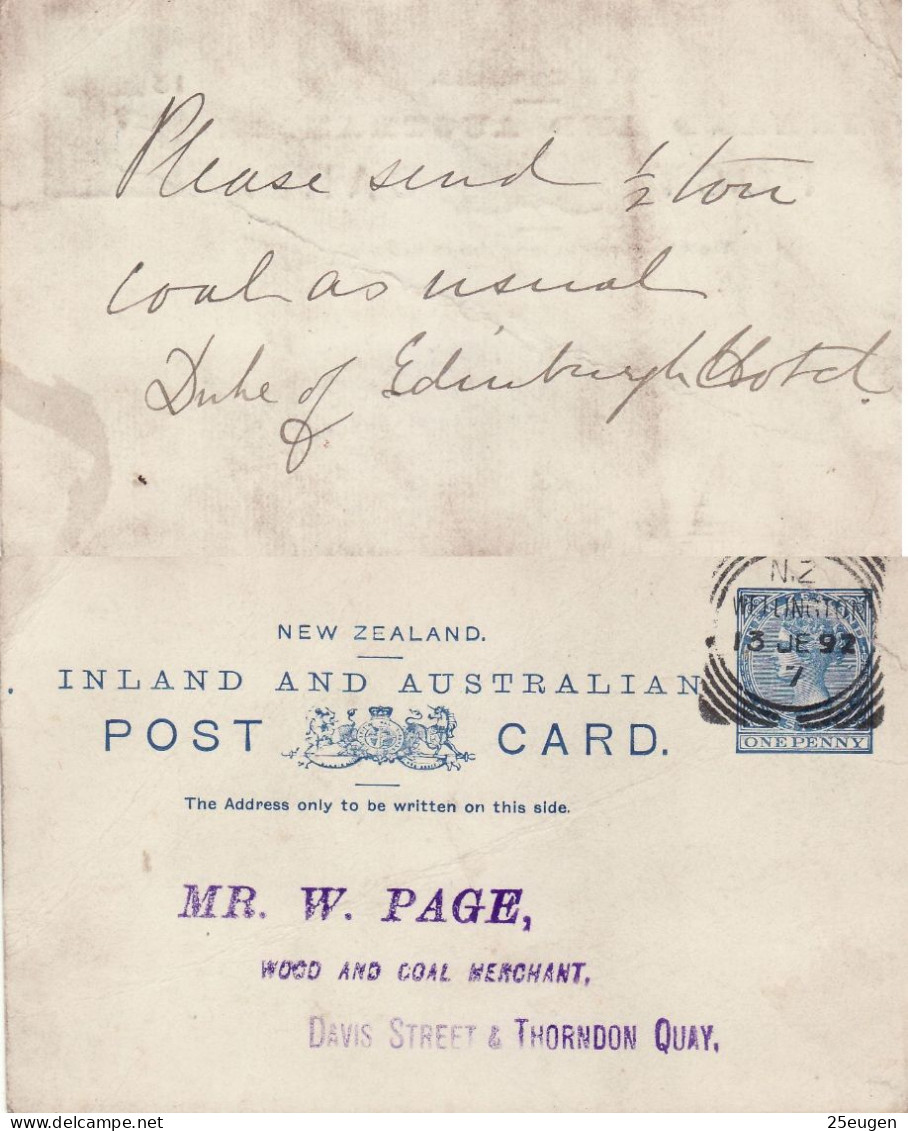 Please send 1/2 ton
coal as usual
Duke of Edinburgh Hotel.
N.Z
WELLINGTON
13 JE 92
1
NEW ZEALAND.
INLAND AND AUSTRALIAN
POST CARD.
ONE PENNY
The Address only to be written on this side.
MR. W. PAGE,
WOOD AND COAL MERCHANT,
DAVIS STREET & THORNDON QUAY.
delcampe.net
25eugen